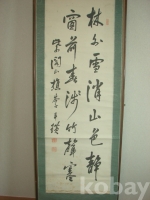 林外雪消山色靜
窗前春淺竹聲寒
kobay